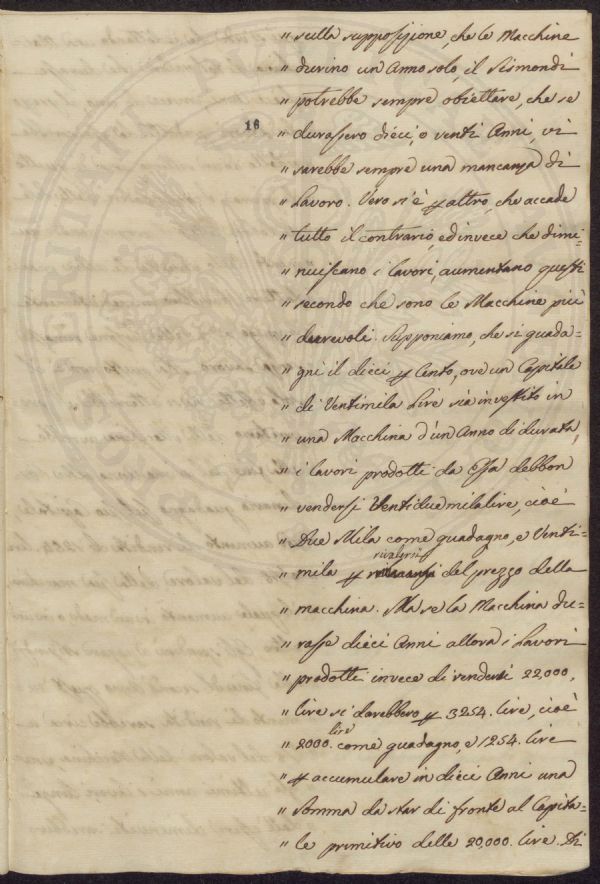 " sulla supposizione, che le Macchine
" durino un Anno solo, il Sismondi
" potrebbe sempre obiettare, che se
16
" durassero dieci, o venti Anni, vi
" sarebbe sempre una mancanza di
" Lavoro. Vero si è p altro, che accade
" tutto il contrario, ed invece che dimi=
" nuiscano i lavori, aumentano questi
" secondo che sono le Macchine più
" durevoli. Supponiamo, che si guada=
" gni il dieci p Cento, ove un Capitale
" di Ventimila Lire sia investito in
" una Macchina d'un Anno di durata,
" i lavori prodotti da Essa debbon
" vendersi Ventiduemilalire, cioè
" Due Mila come guadagno, e Venti=
" mila p del prezzo della
" macchina. Ma se la Macchina du=
" rasse dieci Anni allora i Lavori
" prodotti invece di vendersi 22,000,
" lire si darebbero p 3254. lire, cioè
" 2000. lire come guadagno, e 1254. lire
" p accumulare in dieci Anni una
" Somma da star di fronte al Capita=
" le primitivo delle 20,000. lire. Di